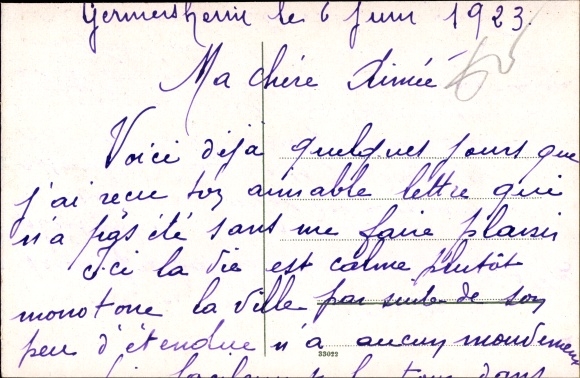 Germersheim le 6 Juin 1923.
Ma chère Aimée
Voici déja quelques jours que
j'ai recu ton aimable lettre qui
n'a pas été sans me faire plaisir
Ici la vie est calme plutôt
monotone la ville par suite de son
peu d'étendue n'a aucun mouvement
33022
facilement le tour dans